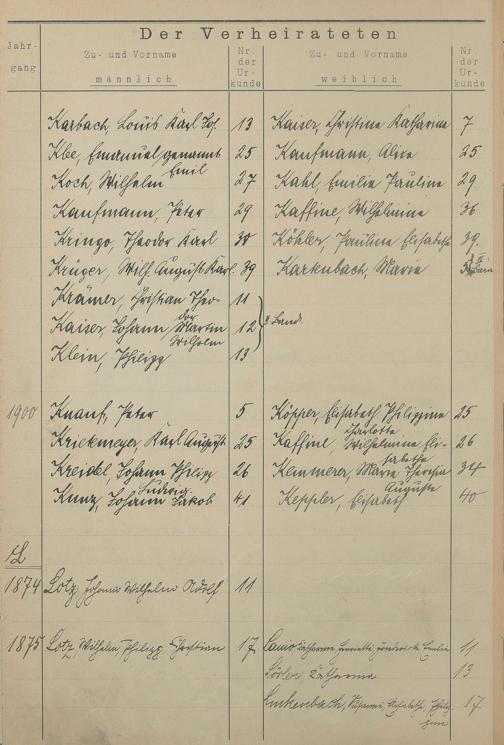 Der Verheirateten
Jahr-
gang
Zu- und Vorname
männlich
Nr. der Ur-kunde
Zu- und Vorname
weiblich
Nr. der Ur-kunde
Karbach, Louis Karl Jos. 13 Kaiser, Christine Katharine 7
Kbe, Emanuel genannt Emil 25 Kaufmann, Alice 25
Koch, Wilhelm 27 Kahl, Emilie Pauline 29
Kaufmann, Peter 29 Kaffine, Wilhelmine 36
Kringo, Theodor Karl 30 Köhler, Pauline Elisabeth 39.
Krüger, Wilh. August Karl. 39 Karkenbach, Marie
Krämer, Christian Theo-dor 11
Kaiser, Johann Martin Wilhelm 12 Band.
Klein, Philipp 13
1900 Knauf, Peter 5 Köpper, Elisabeth Philippine 25
Kriekmeyer, Karl August 25 Kaffine, Charlotte Wilhelmine Eli-sabethe 26
Kreidel, Johann Philipp Ludwig. 26 Kemmerer, Marie Theresia Auguste 34
Kunz, Johann Jakob 41 Keppler, Elisabeth 40
L
1874 Lotz, Johann Wilhelm Adolf 11
1875 Lotz, Wilhelm Philipp Christian 17 Katharine Henriette 11
Katharina 13
Susanne, Elisabethe, Philip-pine 17